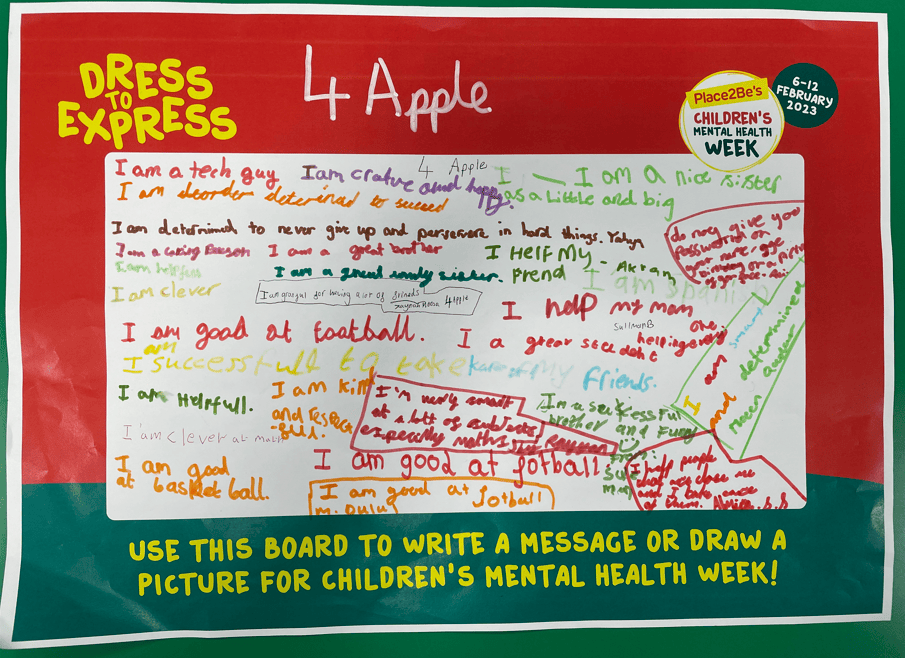 DRESS
TO
EXPRESS
4 Apple
Place2Be's
CHILDREN'S
MENTAL HEALTH
WEEK
6-12
FEBRUARY
2023
4 Apple
I am a tech guy
I am crative and happy.
I am a nice sister
as a little and big
I am deorder deterined to succed
I am determined to never give up and persevere in hard things. Yahya
I am a caring Person
I am a great brother
I Helf My
Frend
Akram
I am helpfull
I am a great sister.
I am clever
I am grargul for having a lot of frineds
4 Apple
I am Spanish
I help my mam
I am good at football.
SullmanB
I a great student
one
helping every
I am successfull to take kare of My friends.
I am Helpfull.
I am kind
and respect
-full.
I'm very smart
at a lot of subjects
especially maths
Rayyan
I'm a sucsessful
brother and Funny
I am clever at maths
I am good
at basket ball.
I am good at fotball
I am good at fotball
I help people
that are close me
and I take care
of them.
do not give you
password on
your name
birthday or a picture
of your face
I am smart
and determined
USE THIS BOARD TO WRITE A MESSAGE OR DRAW A
PICTURE FOR CHILDREN'S MENTAL HEALTH WEEK!